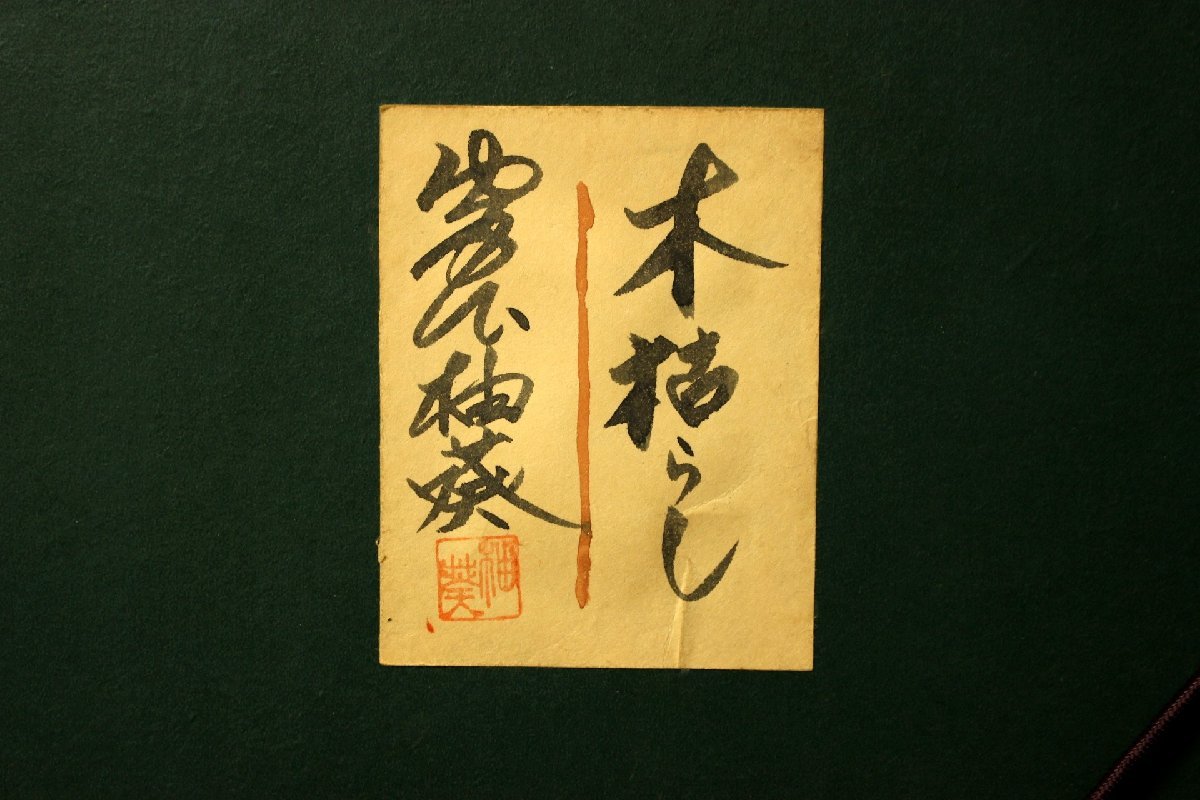 木枯らし
柚葵
柚葵